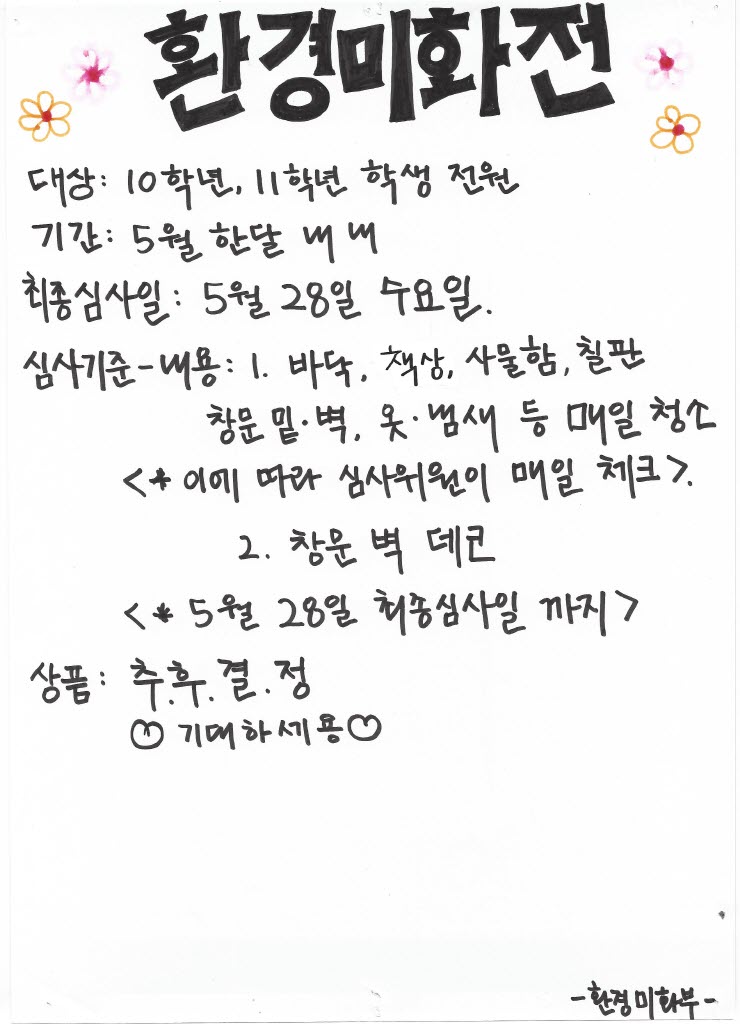 환경미화전
대상: 10학년, 11학년 학생 전원
기간: 5월 한달 내내
최종심사일: 5월 28일 수요일.
심사기준-내용: 1. 바닥, 책상, 사물함, 칠판
창문 밑·벽, 옷·냄새 등 매일 청소
<* 이에 따라 심사위원이 매일 체크>.
2. 창문 벽 데코
<* 5월 28일 최종심사일 까지>
상품: 추.후.결.정
♡ 기대하세용♡
-환경미화부-